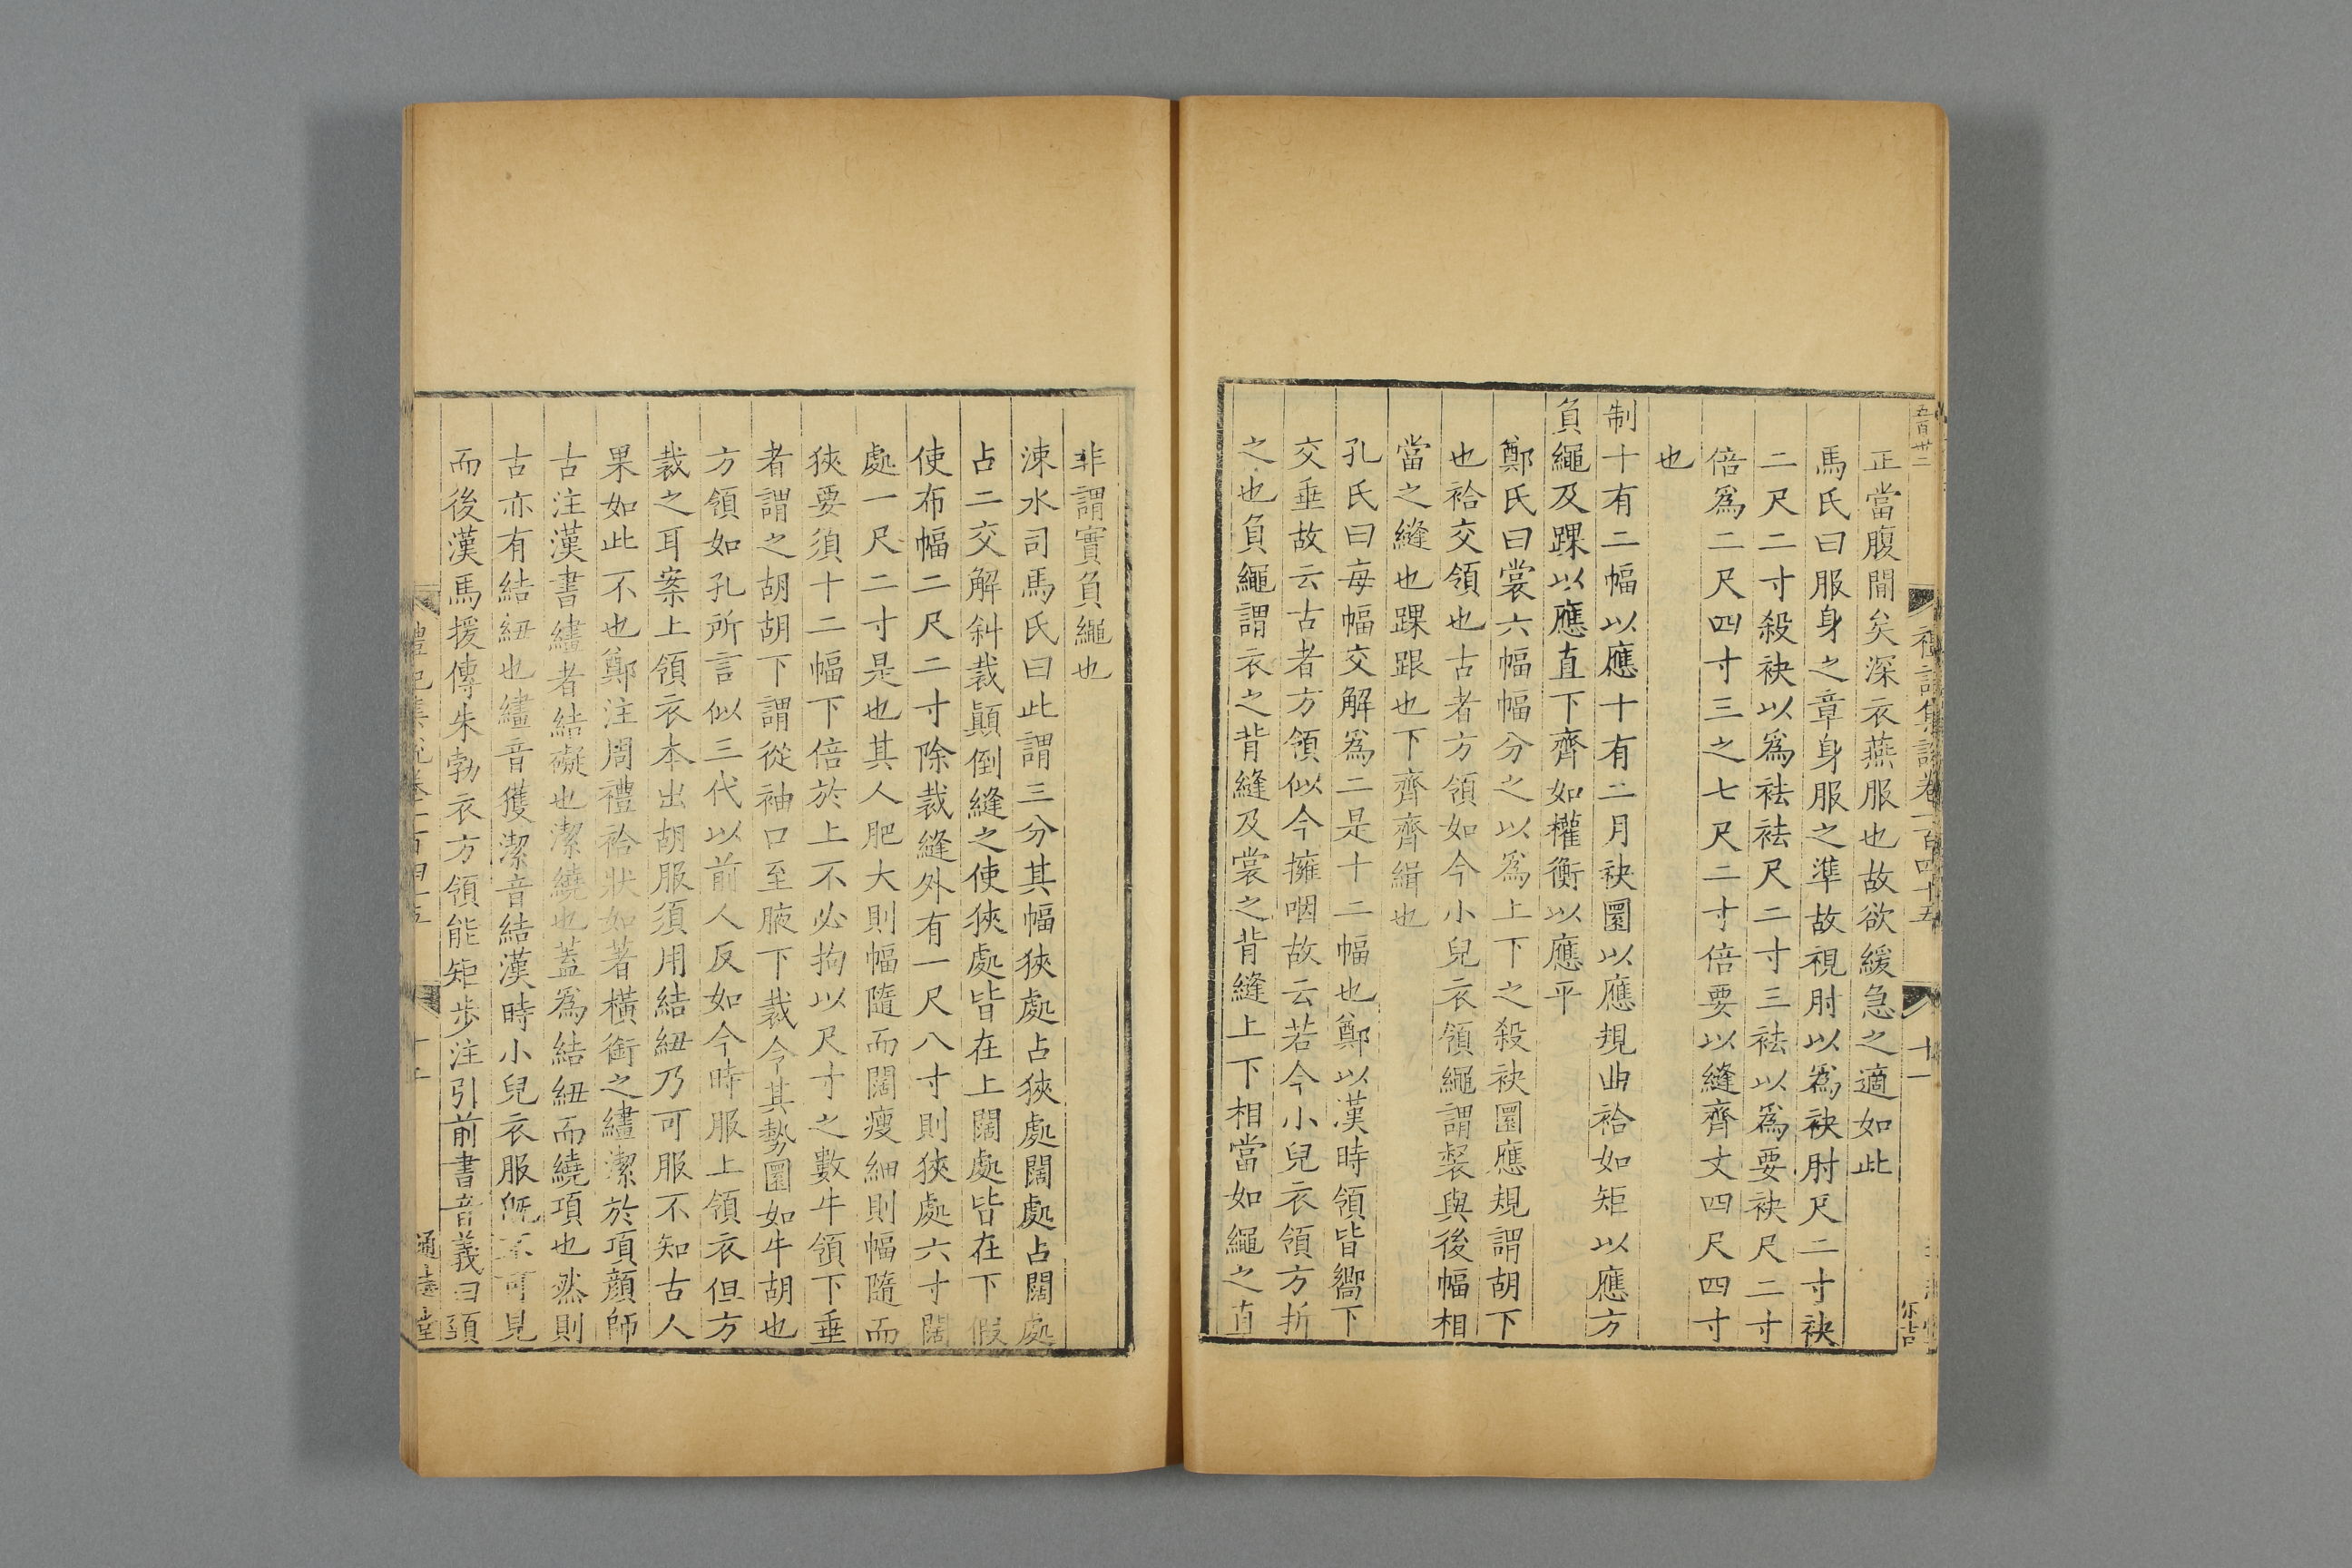 禮記集說卷一百四十五
十一
正當腹間矣深衣燕服也故欲緩急之適如此
馬氏曰服身之章身服之準故視肘以為袂肘尺二寸袂
二尺二寸殺袂以為袪袪尺二寸三袪以為要袂尺二寸
倍爲二尺四寸三之七尺二寸倍要以縫齊丈四尺四寸
也
制十有二幅以應十有二月袂圜以應規曲袷如矩以應方
負繩及踝以應直下齊如權衡以應平
鄭氏曰裳六幅幅分之以爲上下之殺袂圜應規謂胡下
也袷交領也古者方領如今小兒衣領繩謂裻與後幅相
當之縫也踝跟也下齊齊緝也
孔氏曰每幅交解爲二是十二幅也鄭以漢時領皆嚮下
交垂故云古者方領似今擁咽故云若今小兒衣領方折
之也負繩謂衣之背縫及裳之背縫上下相當如繩之直
非謂實負繩也
涑水司馬氏曰此謂三分其幅狹處占狹處闊處占闊處
占二交解斜裁顚倒縫之使狹處皆在上闊處皆在下假
使布幅二尺二寸除裁縫外有一尺八寸則狹處六寸闊
處一尺二寸是也其人肥大則幅隨而闊瘦細則幅隨而
狹要須十二幅下倍於上不必拘以尺寸之數牛領下垂
者謂之胡胡下謂從袖口至腋下裁令其勢圜如牛胡也
方領如孔所言似三代以前人反如今時服上領衣但方
裁之耳案上領衣本出胡服須用結紐乃可服不知古人
果如此不也鄭注周禮袷狀如著橫銜之繣潔於項顏師
古注漢書繣者結礙也潔繞也蓋爲結紐而繞項也然則
古亦有結紐也繣音獲潔音結漢時小兒衣服旣不可見
而後漢馬援傳朱勃衣方領能矩步注引前書音義曰頸
禮記集說卷一百四十五
通志堂